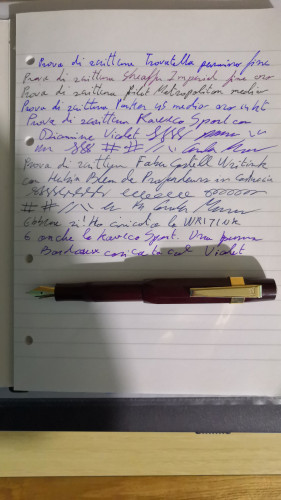 Prova di scrittura Trovatella pennino fine
Prova di scrittura Sheaffer Imperial fine oro
Prova di scrittura Pilot Metropolitan medio
Prova di scrittura Parker 45 medio oro inkt
Prova di scrittura Kaweco Sport con
Diamine Violet
# #
Prova di scrittura Faber Castell Writink
con Bleu
# #
Ebbene si! Ho caricato la WRITINK
E anche la Kaweco Sport. Una penna
Bordeaux caricata col Violet